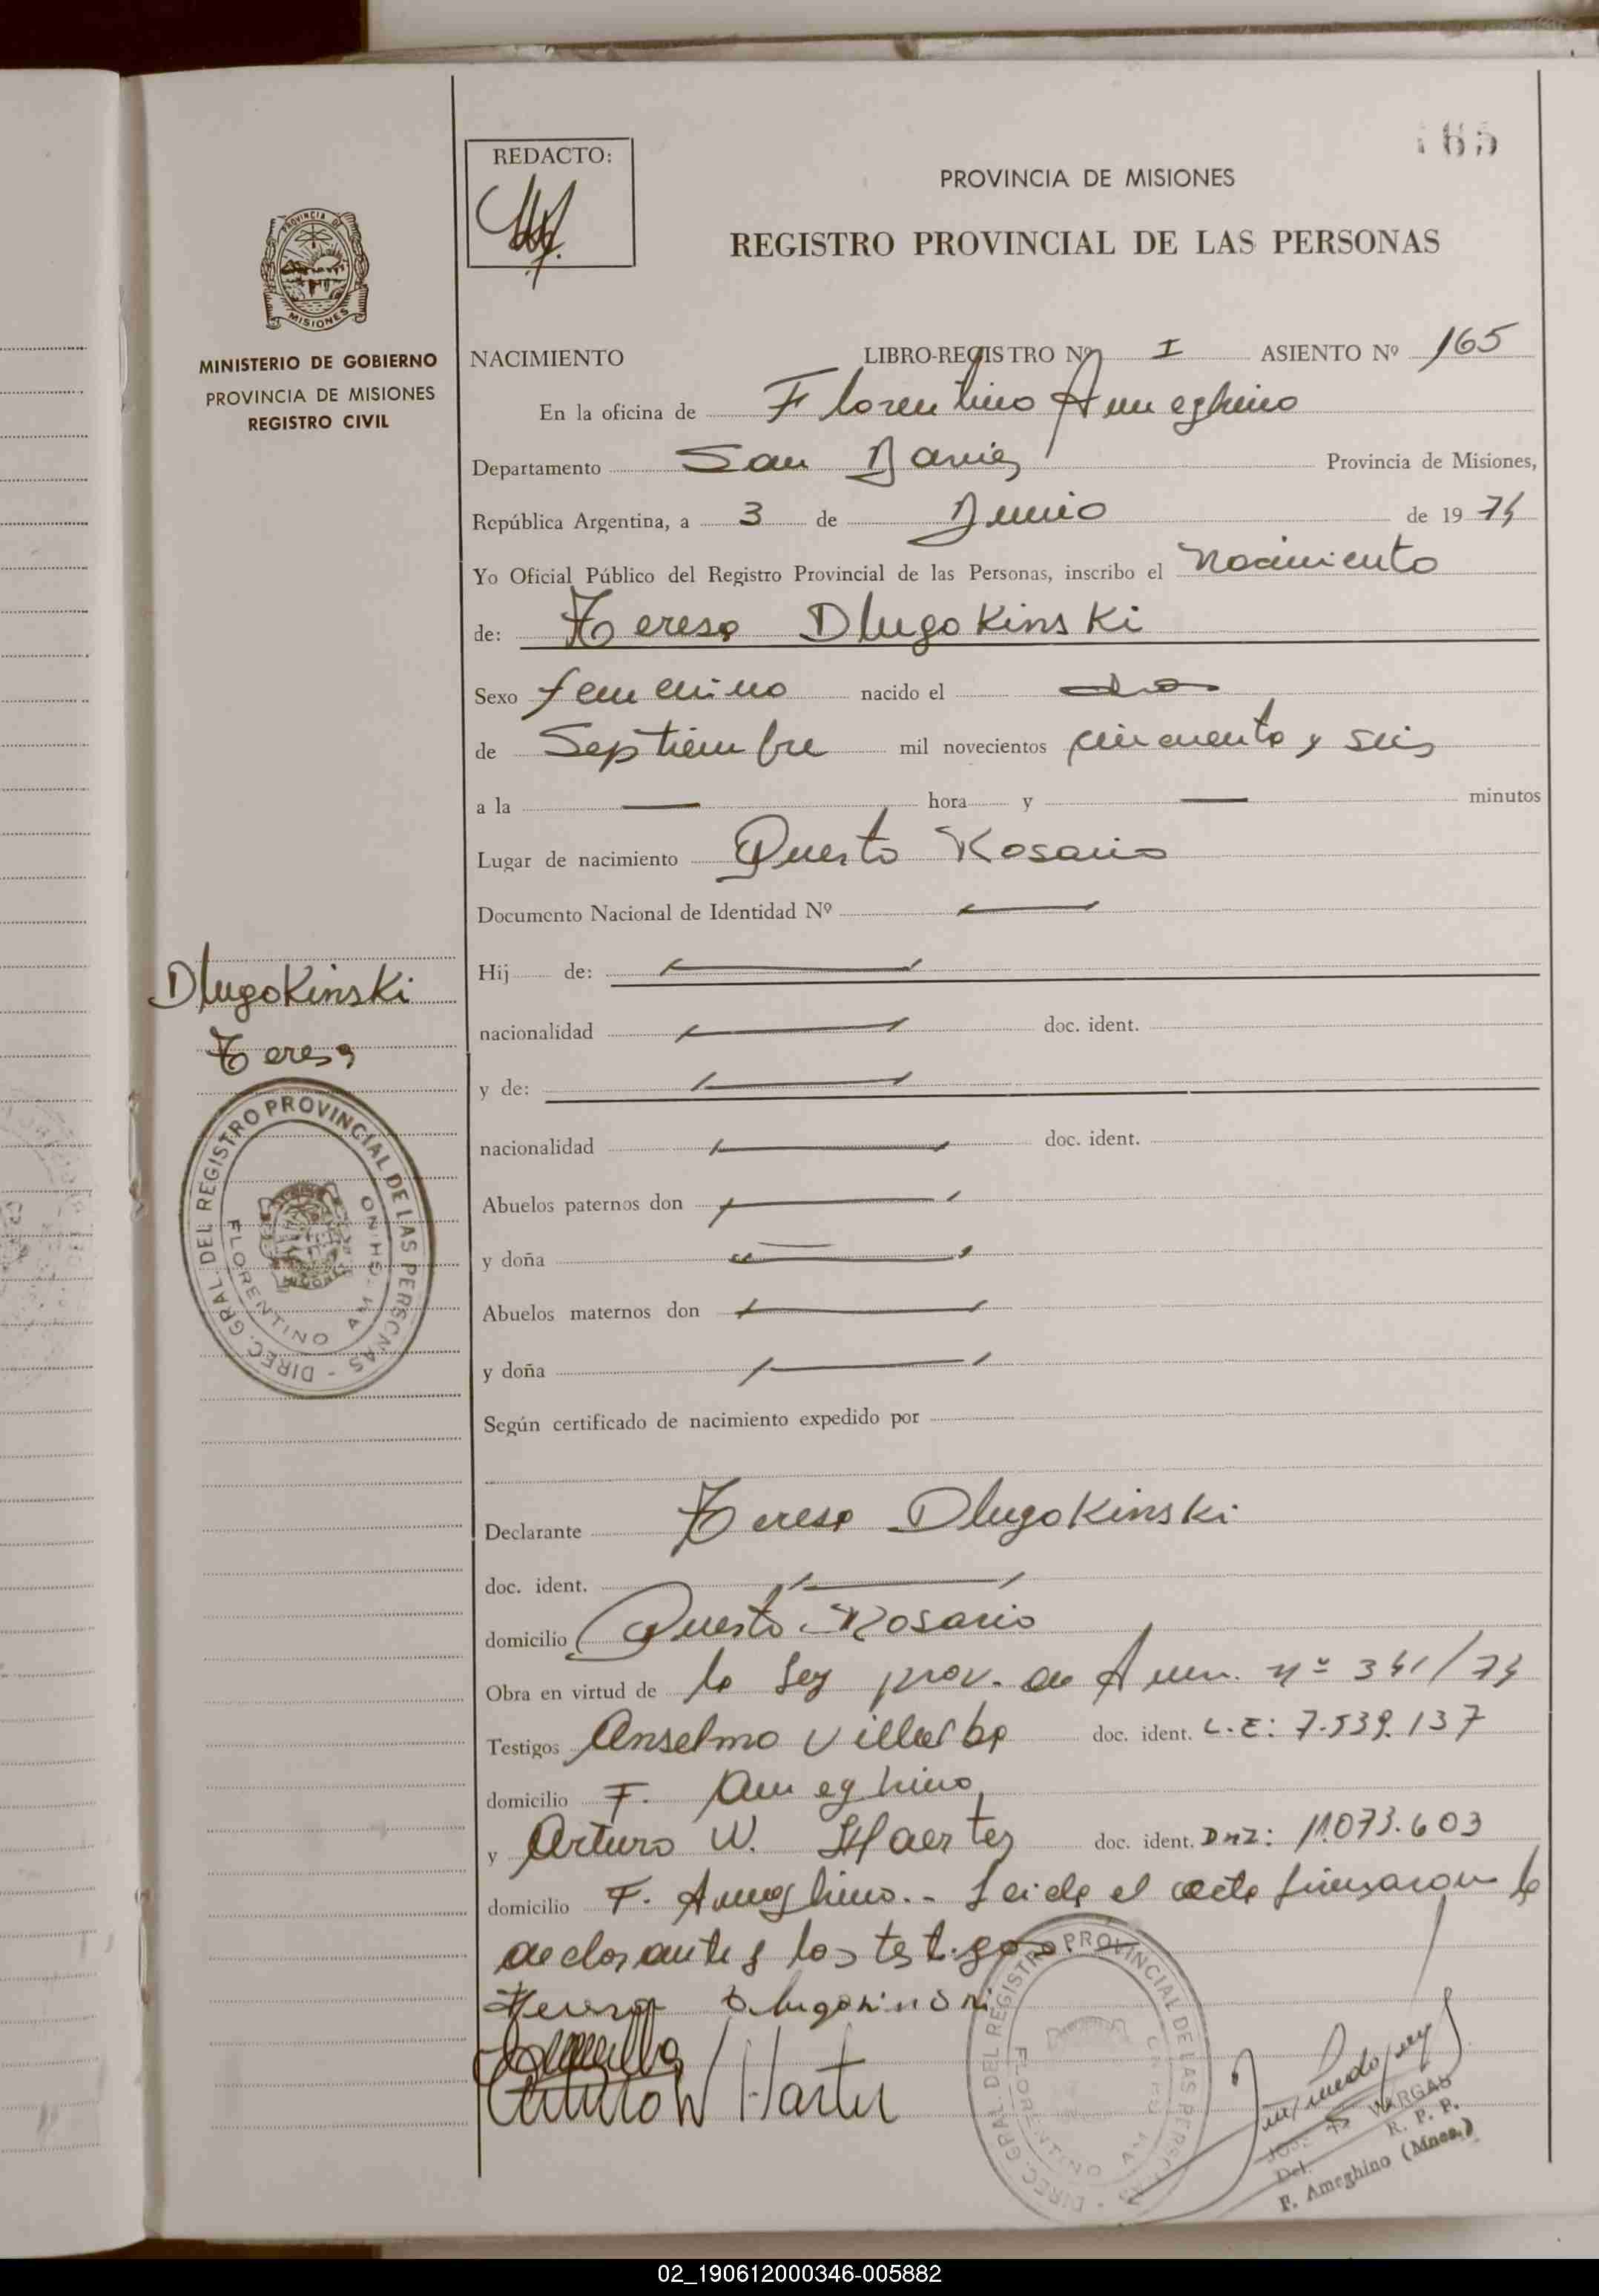 165
REDACTO:
PROVINCIA DE MISIONES
REGISTRO PROVINCIAL DE LAS PERSONAS
PROVINCIA DE
MISIONES
MINISTERIO DE GOBIERNO
PROVINCIA DE MISIONES
REGISTRO CIVIL
NACIMIENTO LIBRO-REGISTRO Nº I ASIENTO Nº 165
En la oficina de Florentino Ameghino
Departamento San Javier Provincia de Misiones,
República Argentina, a 3 de Junio de 19 74
Yo Oficial Público del Registro Provincial de las Personas, inscribo el Nacimiento
de: Teresa DlugoKinsKi
Sexo femenino nacido el dos
de Septiembre mil novecientos cincuenta y seis
a la — hora y — minutos
Lugar de nacimiento Puerto Rosario
Documento Nacional de Identidad Nº —
Hij de: —
nacionalidad — doc. ident.
y de: —
nacionalidad — doc. ident.
Abuelos paternos don —
y doña —
Abuelos maternos don —
y doña —
Según certificado de nacimiento expedido por
Declarante Teresa DlugoKinski
doc. ident. —
domicilio Puerto Rosario
Obra en virtud de la Ley prov. de Amn. nº 341/74
Testigos Anselmo Villalba doc. ident. L.E: 7.539.137
domicilio F. Ameghino
y Arturo W. Haerter doc. ident. DNI: 11.073.603
domicilio F. Ameghino.- Leida el acta firmaron la
declarante y los testigos
Teresa Dlugokinski
Arturo W Harter
DlugoKinsKi
Teresa
DIREC. GRAL. DEL REGISTRO PROVINCIAL DE LAS PERSONAS -
FLORENTINO AMEGHINO
DIREC. GRAL. DEL REGISTRO PROVINCIAL DE LAS PERSONAS -
FLORENTINO AM
JOSE VARGAS
Del. R. P. P.
F. Ameghino (Mnes.)
02_190612000346-005882